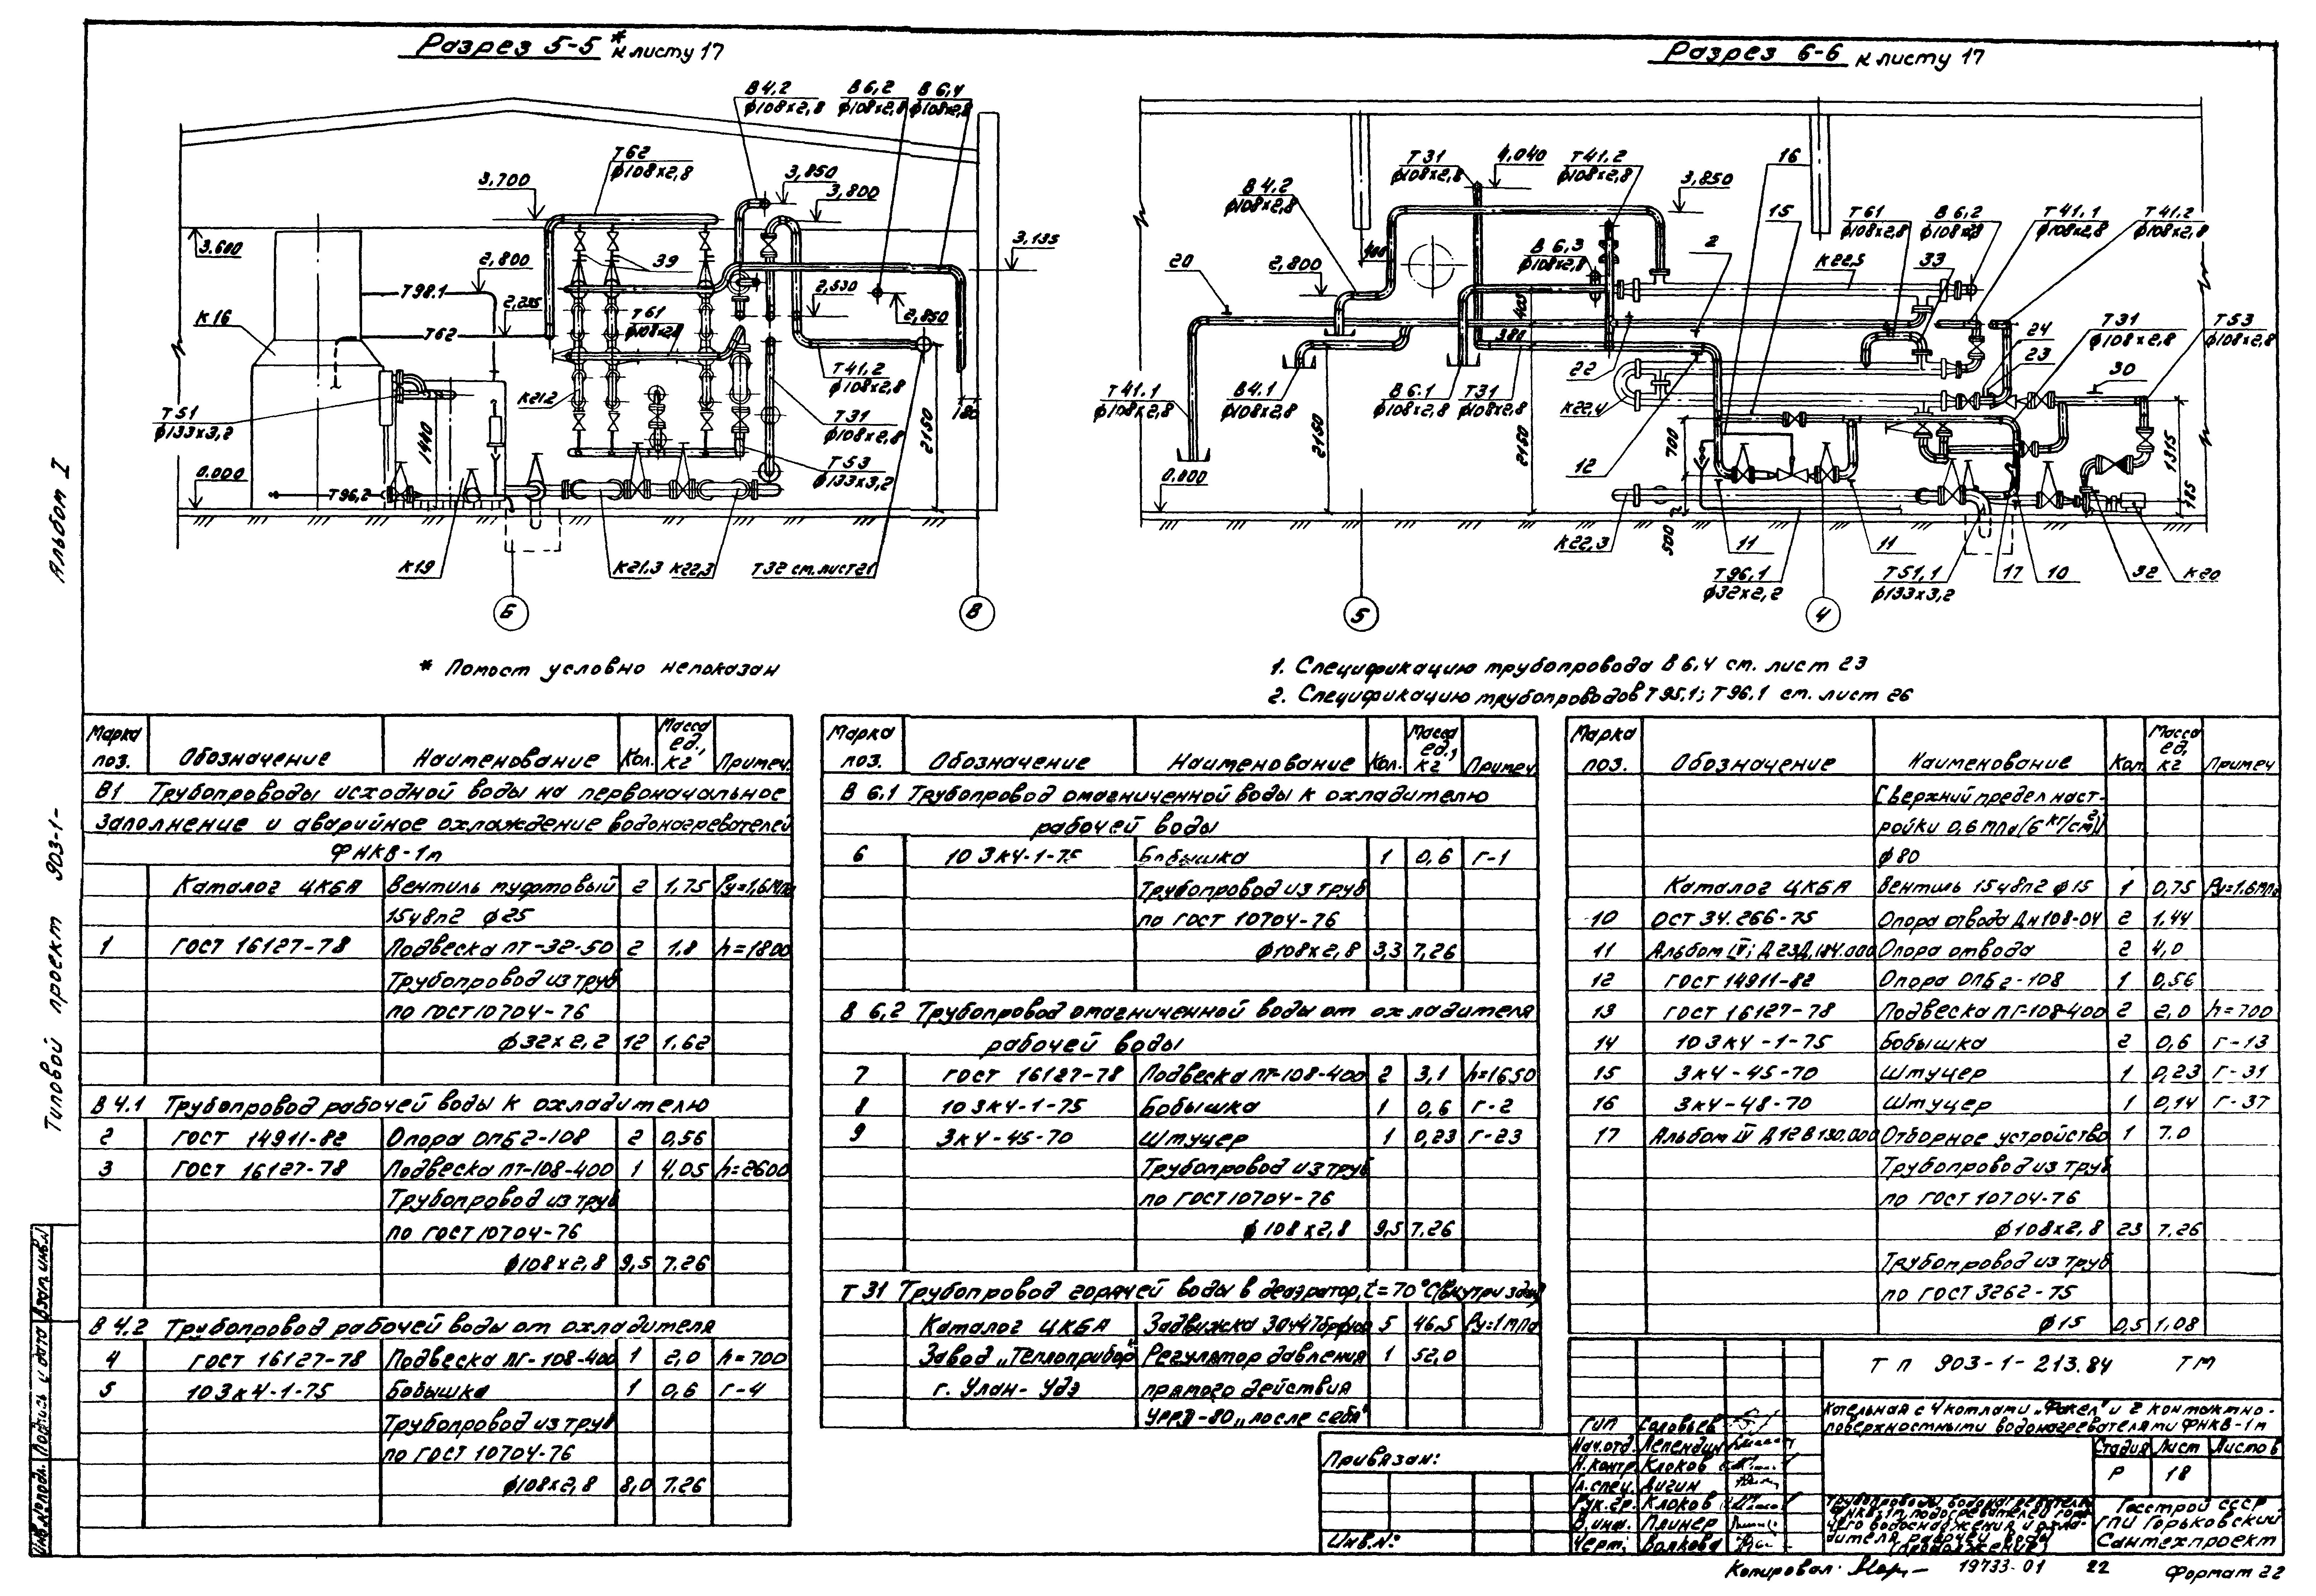 Разрез 5-5 * к листу 17
Разрез 6-6 к листу 17
В4,2
ф108х2,8
В6,2
ф108х2,8
В6,4
ф108х2,8
Т62
ф108х2,8
3,700
3,850
3,800
3,600
2,800
39
3,135
Т98.1
2,235
2,530
2,850
К16
Т62
Т61
ф108х2,8
Т41,2
ф108х2,8
К21,2
Т51
ф133х3,2
1440
Т31
ф108х2,8
2150
180
Т53
ф133х3,2
0.000
Т96,2
К19
К21,3
К22,3
Т32 см. лист 21
Б
В
Т31
ф108х2,8
4,040
Т41,2
ф108х2,8
16
В4,2
ф108х2,8
3,850
15
Т61
ф108х2,8
В6,2
ф108х2,8
Т41,1
ф108х2,8
Т41,2
ф108х2,8
20
2,800
400
В6,3
ф108х2,8
2
К22,5
33
405
380
24
23
Т31
ф108х2,8
Т53
ф108х2,8
Т41,1
ф108х2,8
В4,1
ф108х2,8
В6,1
ф108х2,8
Т31
ф108х2,8
22
К22,4
30
2150
2150
700
12
1315
185
0.000
К22,3
500
11
11
Т96,1
ф32х2,2
Т51,1
ф133х3,2
17
10
32
К20
5
4
* Помост условно непоказан
1. Спецификацию трубопровода В6,4 см. лист 23
2. Спецификацию трубопроводов Т95,1; Т96,1 см. лист 26
Альбом I
Типовой проект 903-1-
Марка поз. Обозначение Наименование Кол. Масса ед., кг Примеч.
В1 Трубопроводы исходной воды на первоначальное
заполнение и аварийное охлаждение водонагревателей
ФНКВ-1м
Каталог ЦКБА Вентиль муфтовый 2 1,75 Ру=1,6МПа
15ч8п2 ф25
1 ГОСТ 16127-78 Подвеска ПТ-32-50 2 1.8 h=1800
Трубопровод из труб
по ГОСТ 10704-76
ф32х2,2 12 1.62
В4.1 Трубопровод рабочей воды к охладителю
2 ГОСТ 14911-82 Опора ОПБ2-108 2 0,56
3 ГОСТ 16127-78 Подвеска ПТ-108-400 1 4,05 h=2600
Трубопровод из труб
по ГОСТ 10704-76
ф108х2,8 9,5 7.26
В4.2 Трубопровод рабочей воды от охладителя
4 ГОСТ 16127-78 Подвеска ПГ-108-400 1 2,0 h=700
5 10 3к4-1-75 Бобышка 1 0,6 г-4
Трубопровод из труб
по ГОСТ 10704-76
ф108х2,8 8,0 7.26
Марка поз. Обозначение Наименование Кол. Масса ед., кг Примеч
В 6.1 Трубопровод омагниченной воды к охладителю
рабочей воды
6 10 3к4-1-75 Бобышка 1 0,6 г-1
Трубопровод из труб
по ГОСТ 10704-76
ф108х2,8 3,3 7,26
В 6.2 Трубопровод омагниченной воды от охладителя
рабочей воды
7 ГОСТ 16127-78 Подвеска ПТ-108-400 2 3,1 h=1650
8 10 3к4-1-75 Бобышка 1 0,6 г-2
9 3к4-45-70 Штуцер 1 0,23 г-23
Трубопровод из труб
по ГОСТ 10704-76
ф108х2,8 9,5 7.26
Т31 Трубопровод горячей воды в деаэратор, t=70°С (внутри здан)
Каталог ЦКБА Задвижка 5 46.5 Ру=1МПа
Завод „Теплоприбор" Регулятор давления 1 52,0
г. Улан-Удэ прямого действия
УРРД-80 „после себя"
Марка поз. Обозначение Наименование Кол. Масса ед, кг Примеч
(верхний предел наст-
ройки 0,6 МПа (6 кг/см²))
ф80
Каталог ЦКБА Вентиль 15ч8п2 ф15 1 0,75 Ру=1.6МПа
10 ОСТ 34.266-75 Опора отвода Дн108-04 2 1.44
11 Альбом IV; Д23Д.184.000 Опора отвода 2 4,0
12 ГОСТ 14911-82 Опора ОПБ2-108 1 0,56
13 ГОСТ 16127-78 Подвеска ПГ-108-400 2 2,0 h=700
14 10 3к4-1-75 Бобышка 2 0,6 г-13
15 3к4-45-70 Штуцер 1 0,23 г-31
16 3к4-48-70 Штуцер 1 0,14 г-37
17 Альбом IV Д12В130.000 Отборное устройство 1 7.0
Трубопровод из труб
по ГОСТ 10704-76
ф108х2,8 23 7.26
Трубопровод из труб
по ГОСТ 3262-75
ф15 0,5 1.08
ТП 903-1-213.84 ТМ
Котельная с 4 котлами „Факел" и 2 контактно-
поверхностными водонагревателями ФНКВ-1м
Стадия Лист Листов
Р 18
Трубопроводы водонагревателя
ФНКВ-1м, подогревателей горя-
чего водоснабжения и охла-
дителя рабочей воды
(продолжение)
Госстрой СССР
ГПИ Горьковский
Сантехпроект
ГИП Соловьев
Нач.отд. Лепендин
Н.контр. Клоков
Гл.спец. Дигин
Рук.гр. Клоков
В.инж. Плинер
Черт. Волкова
Привязан:
Инв.№:
Инв.№ подл. Подпись и дата Взам.инв.№
Копировал: 19733-01 22 Формат 22